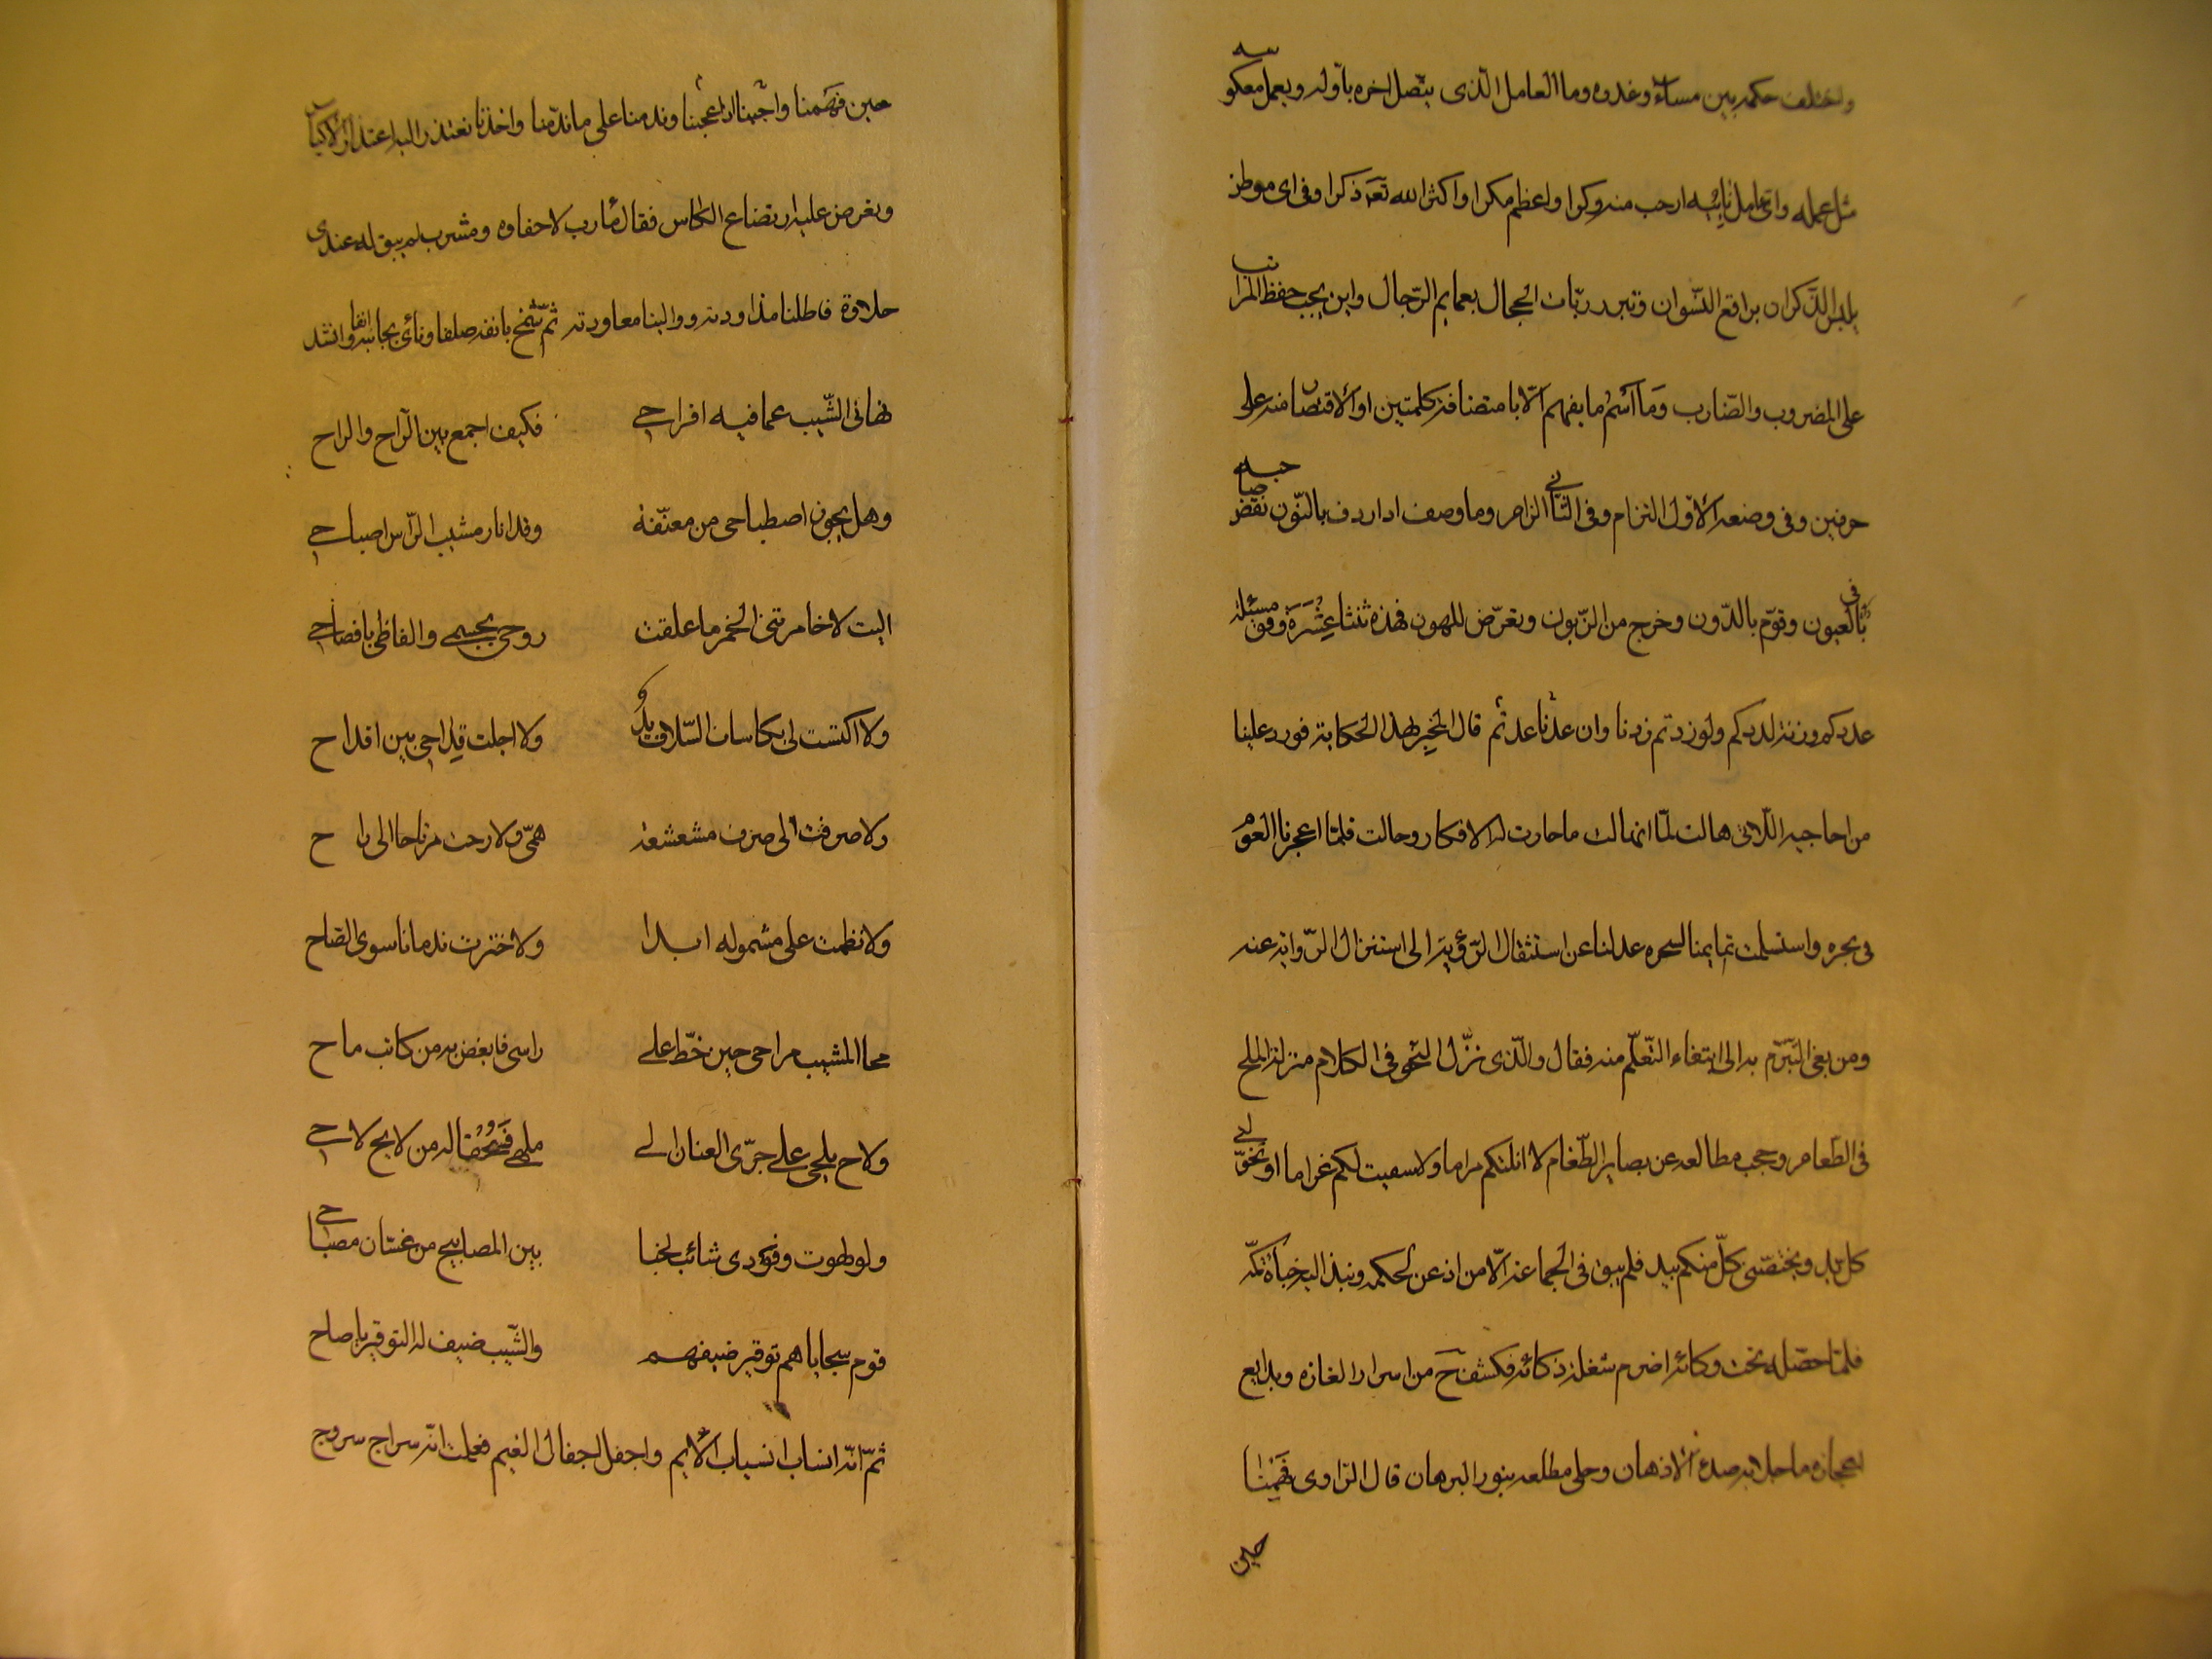 واختلف حكمه بين مساء وغدوه وما العامل الّذى يتّصل اخره باوله ويعمل معكوسه
مثل عمله واىّ عامل نايبه ارحب منه وكرا واعظم مكرا واكثر الله تعه ذكرا وفى اى موطن
يلبس الذّكران براقع النّسوان وتبرز ربّات الحجال بعمايم الرّجال واين يجب حفظ المراتب
على المضروب والضّارب وما اسم ما يفهم الّا باستضافة كلمتين او الاقتصار منه على
حرفين وفى وضعه الاوّل التزام وفى الثّانى الزام وما وصف اذا ردف بالنّون نقض صاحبه
فى العيون وقوّم بالدّون وخرج من الزّبون وتعرّض للهون فهذه ثنتا عشرة مسئلة وفق
عددكم وزنة لددكم ولو زدتم زدنا وان عدتم عدنا قال المخبر بهذه الحكاية فورد علينا
من احاجيه اللّاتى هالت لمّا انهالت ما حارت له الافكار وحالت فلمّا اعجزنا العوم
فى بحره واستسلمت تمايمنا لسحره عدلنا عن استثقال الرّؤية له الى استنزال الرّواية عنه
ومن بغى التّبرّم به الى ابتغاء التّعلّم منه فقال والّذى نزّل النّحو فى الكلام منزلة الملح
فى الطّعام وحجب مطالعه عن بصاير الطّغام لا انلتكم مراما ولا سفيت لكم غراما او تخوّلنى
كلّ يد ويختصّنى كلّ منكم بيد فلم يبق فى الجماعة الّا من اذعن لحكمه ونبذ اليه خباة كمّه
فلمّا حصّله تحت وكائه اضرم شعلة ذكائه فكشف ح من اسرار الغازه وبدايع
اعجازه ما جلا به صداء الاذهان وجلى مطلعه بنور البرهان قال الرّاوى فهمنا
حين
حين فهمنا وعجبنا اذ اجبنا وندمنا على ما ندّ منّا واخذنا نعتذر اليه اعتذار الاكياس
ونعرض عليه ارتضاع الكاس فقال مأرب لا حفاوه ومشرب لم يبق له عندى
حلاوة فاطلنا مذاودته ووالينا معاودته ثمّ شمخ بانفه صلفا ونأى بجانبه انفا وانشد
نهانى الشّيب عما فيه افراحى فكيف اجمع بين الرّاح والراح
وهل يجوز اصطباحى من معتّقة وقد انار مشيب الرّاس اصباحى
اليت لا خامرتنى الخمر ما علقت روحى بجسمى والفاظى بافصاحى
ولا اكتست لى بكاسات السّلاف يد ولا اجلت قداحى بين اقداح
ولا صرفت الى صرف مشعشعة همّى ولا رحت مرتاحا الى راح
ولا نظمت على مشموله ابدا ولا اخترت ندمانا سوى الصّاح
محا المشيب مراحى حين خطّ على راسى فابغض به من كاتب ماح
ولاح يلحى على جرّى العنان الى ملهى فسحقا له من لايح لاحى
ولو لهوت وفودى شائب لخبا بين المصابيح من غسّان مصباحى
قوم سجاياهم توقير ضيفهم والشّيب ضيف له التوقير يا صاح
ثمّ انّه انساب انسياب الايم واجفل اجفال الغيم فعلمت انّه سراج سروج